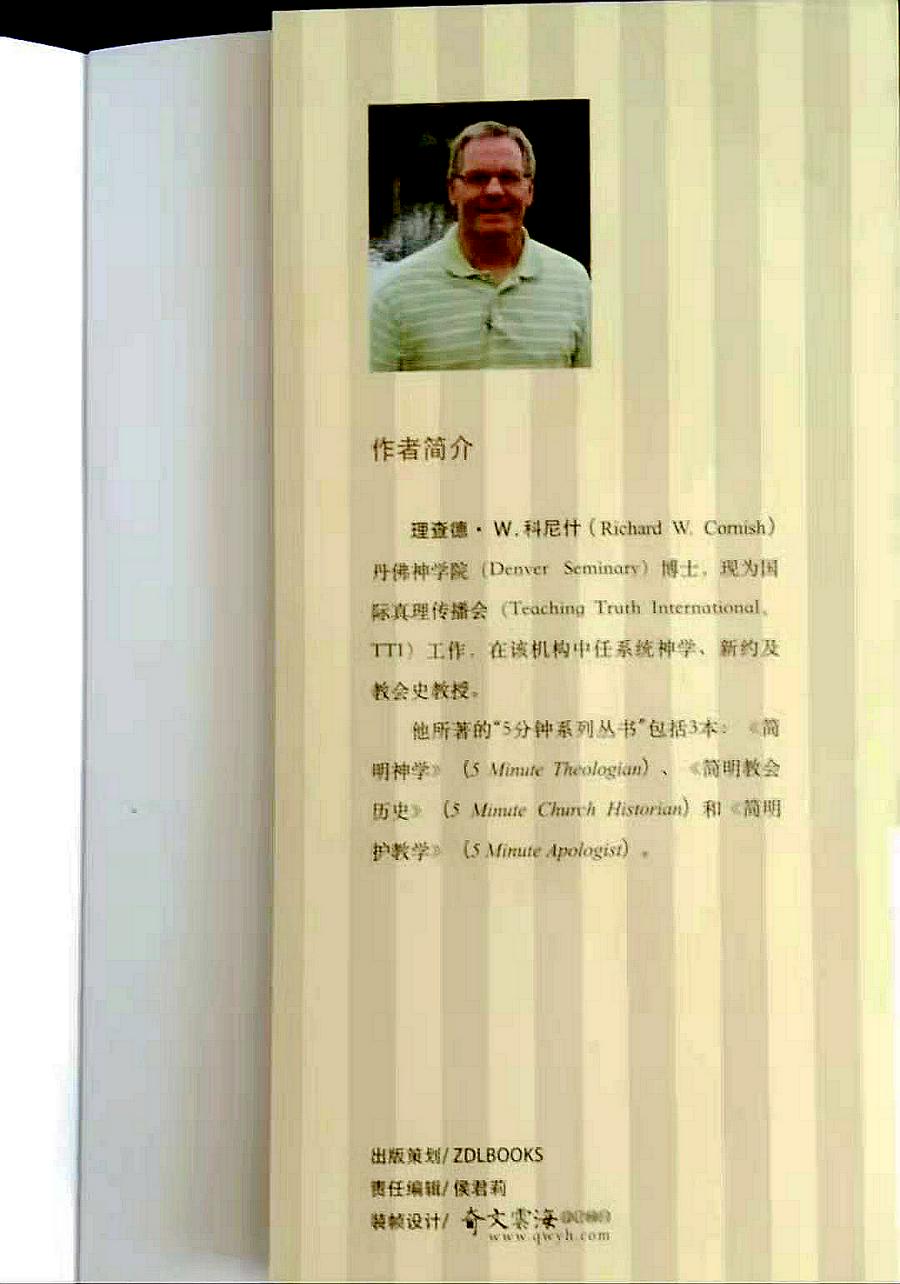 作者简介
理查德·W.科尼什（Richard W. Cornish）
丹佛神学院（Denver Seminary）博士，现为国
际真理传播会（Teaching Truth International，
TTI）工作，在该机构中任系统神学、新约及
教会史教授。
他所著的“5分钟系列丛书”包括3本：《简
明神学》（5 Minute Theologian）、《简明教会
历史》（5 Minute Church Historian）和《简明
护教学》（5 Minute Apologist）。
出版策划/ ZDLBOOKS
责任编辑/ 侯君莉
装帧设计/ 奇文雲海
www.qwyh.com